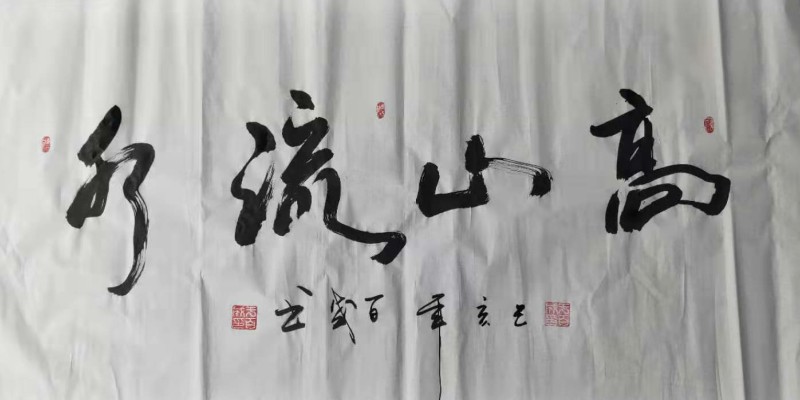 高山流水
己亥年百盛书